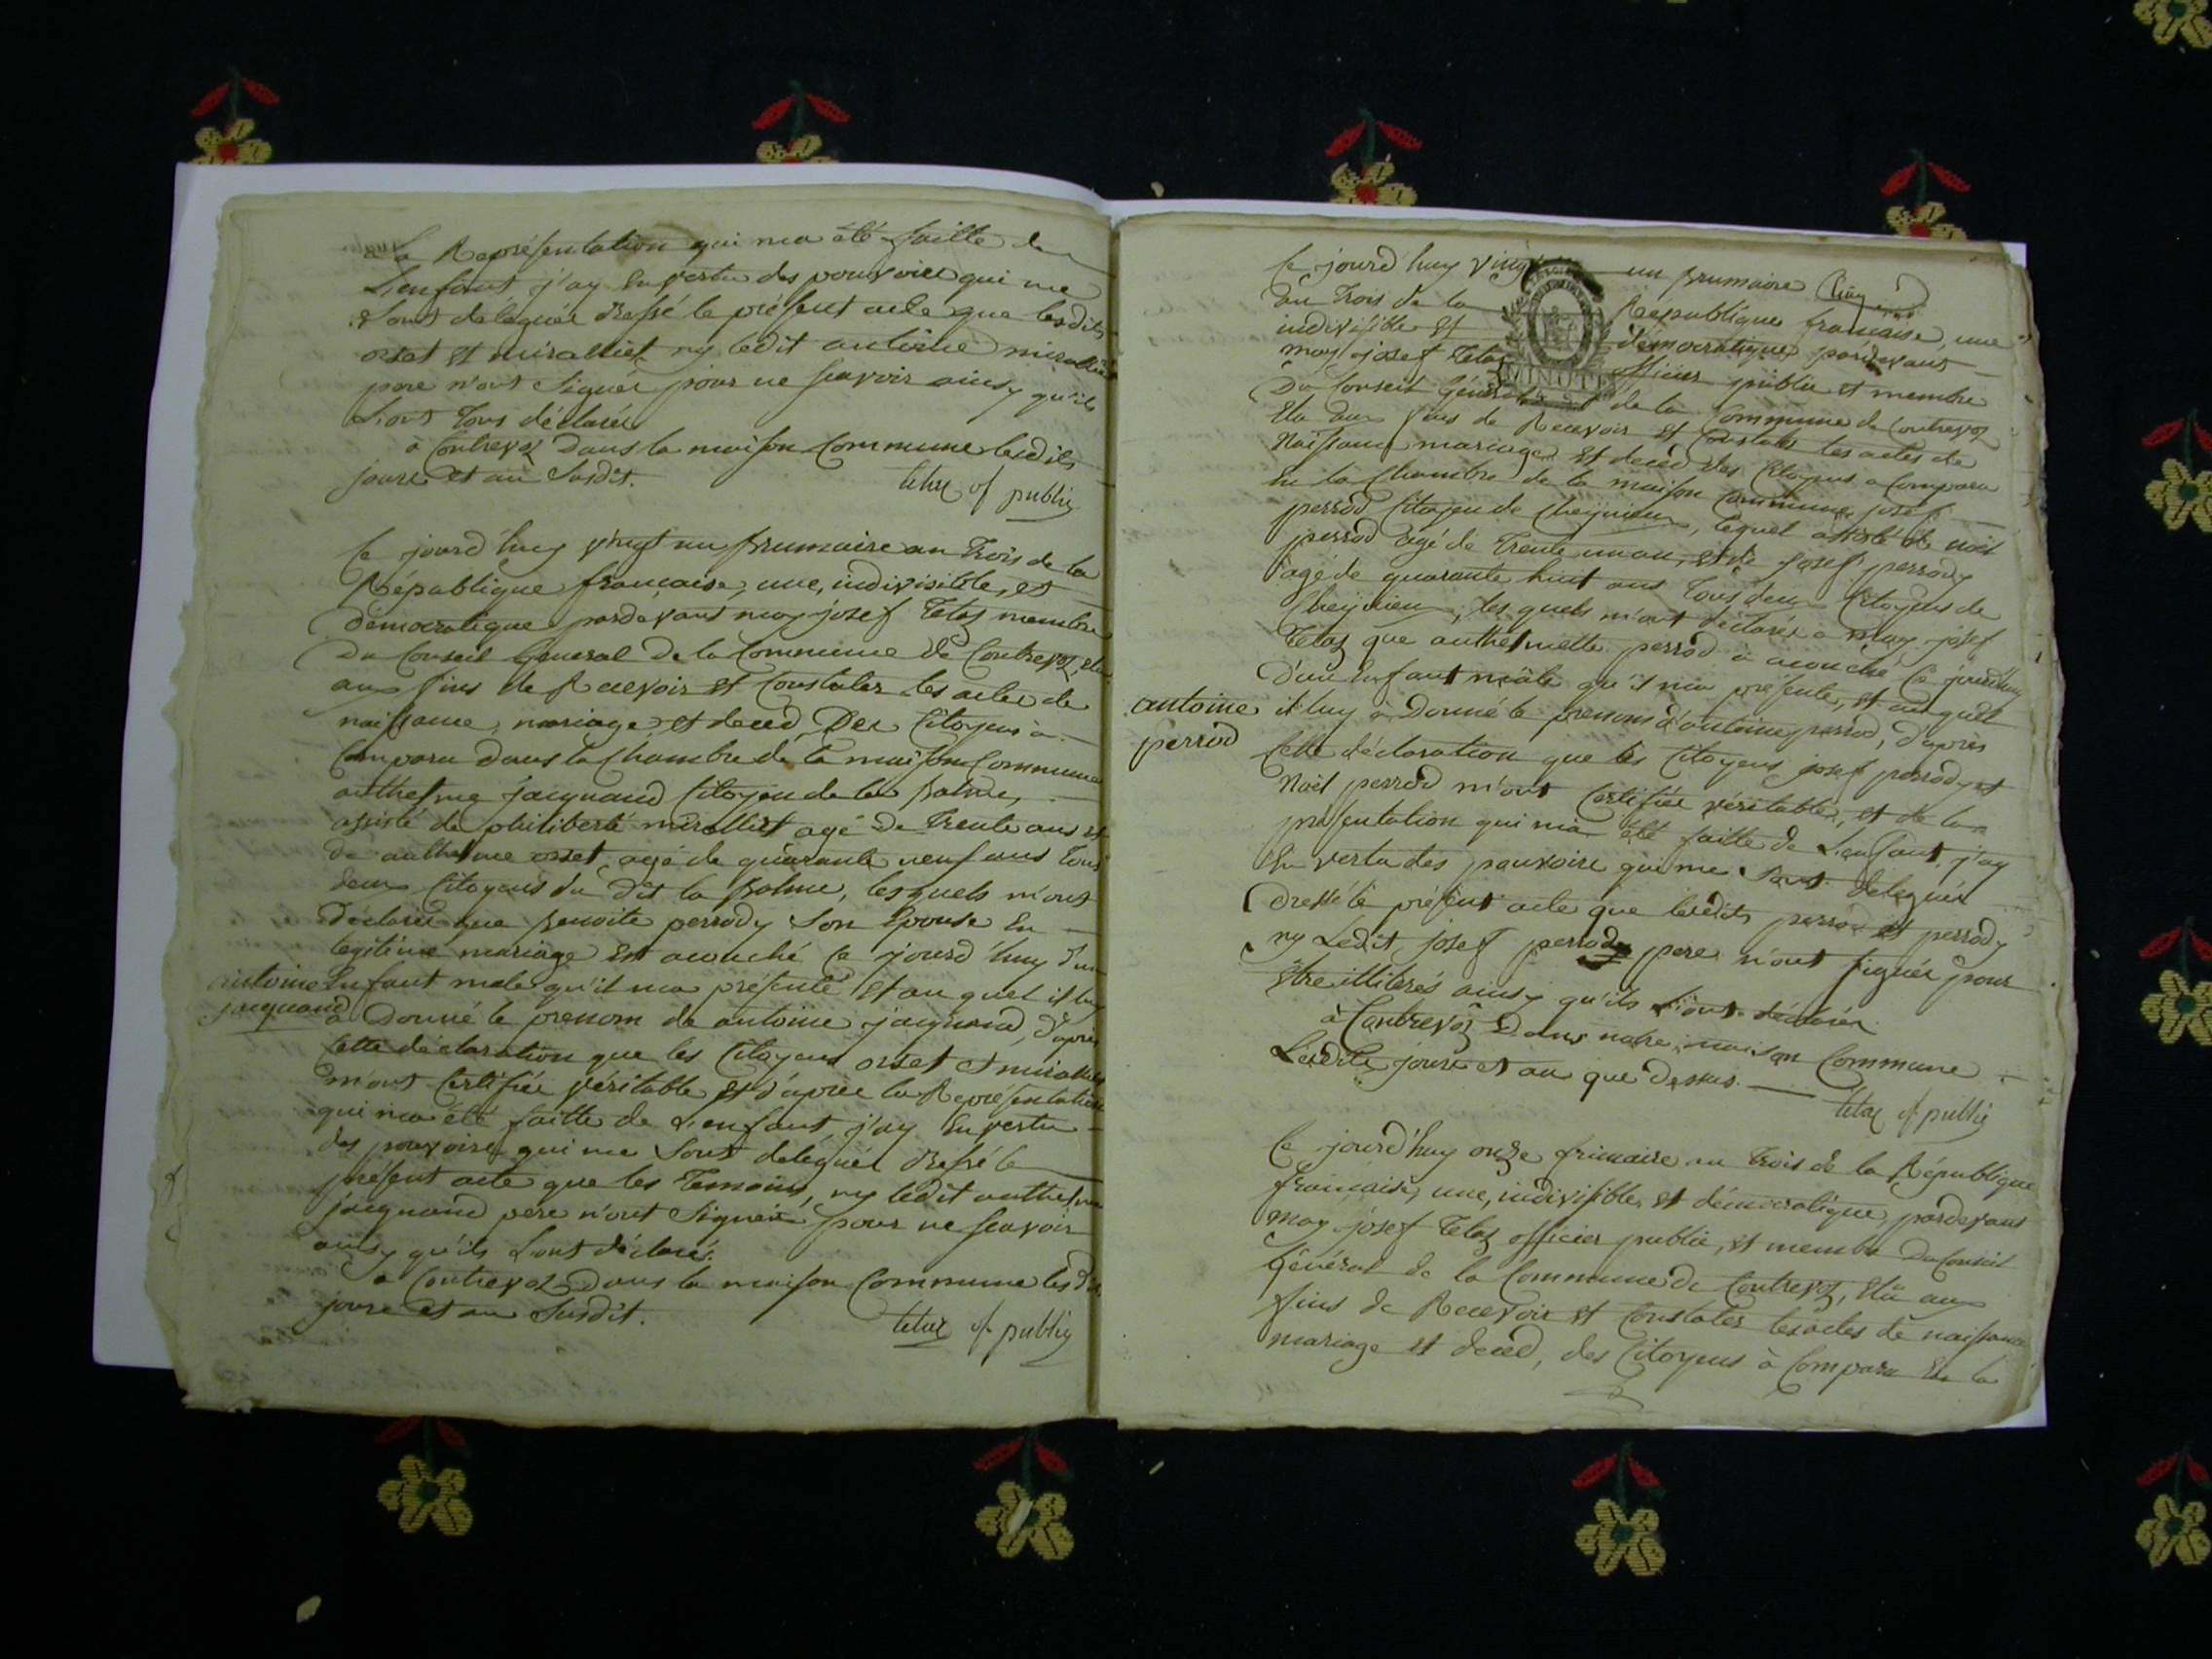 la Représentation qui ma été faitte de
L'enfant j'ay En vertu des pouvoires qui me
Sont délégués dressé le présent acte que lesdits
orset et mirallict ny ledit antoine mirallict
pere n'ont Signés pour ne scavoir ainsy qu'ils
L'ont Tous déclarés
à Contrevoz Dans la maison Commune lesdits
jours et an Susdit.
tetaz of public
Ce jourd'huy vingt un brumaire an Trois de la
République française, une, indivisible, et
démocratique pardevant moy josef Tetaz membre
Du Conseil General De la Commune de Contrevoz, élu
aux fins de Recevoir et Constater les actes de
naissance, mariage, et deced, Des Citoyens à
Comparu dans la Chambre de la maison Commune
anthelme jaignand Citoyen de la balme,
assisté de philiberte mirallict agé De trente ans et
de anthelme orset agé de quarante neuf ans tous
deux Citoyens du dit la balme, lesquels m'ont
Déclarés que benoite perrody Son Epouse En
legitime mariage est acouché Ce jourd'huy d'un
antoine jaignand
Enfant male qu'il ma présenté Et au quel il luy
a Donné le prenom de antoine jaignand, d'après
Cette déclaration que les Citoyens orset et mirallict
m'ont Certifiée véritable et d'après la Représentation
qui ma été faitte de L'enfant, j'ay En vertu
des pouvoires qui me Sont délégués dressé le
présent acte que les Temoins, ny ledit anthelme
jaignand père n'ont Signés pour ne scavoir
ainsy qu'ils L'ont déclarés.
a Contrevoz Dans la maison Commune les dits
jours et an Susdit.
tetaz of public
Ce jourd'huy vingt un brumaire
an trois de la République française, une
indivisible et démocratique, pardevant
moy josef Tetaz officier public et membre
MINUTE
Du Conseil Général de la Commune de Contrevoz
Elu aux fins de Recevoir et Constater les actes de
Naissance mariages et deced des Citoyens a Comparu
En la Chambre de la maison Commune josef
perrod Citoyen de Cheijnieu, lequel assisté de noël
perrod agé de Trente un an, et de josef perrody
agé de quarante huit ans Tous deux Citoyens de
Cheijnieu, lesquels m'ont déclarés a moy josef
Tetaz que anthelmette perrod à acouché Ce jourd'huy
D'un Enfant mâle qu'il ma présenté, et auquel
antoine perrod
il luy à Donné le prenom d'antoine perrod, d'après
Cette déclaration que les Citoyens josef perrody et
Noël perrod m'ont Certifiée véritable, et de la
présentation qui ma été faitte de L'enfant, j'ay
En vertu des pouvoires qui me Sont delegués
Dressé le présent acte que lesdits perrod et perrody
ny Ledit josef perrod pere n'ont signés pour
être illitérés ainsy qu'ils L'ont déclarés
à Contrevoz Dans notre maison Commune
Lesdits jours et an que Dessus.
tetaz of public
Ce jourd'huy onze frimaire an trois de la République
française, une, indivisible, et démocratique, pardevant
moy josef Tetaz officier public, et membre Du Conseil
Général de la Commune De Contrevoz, Elû aux
fins de Recevoir et Constater les actes de naissance
mariage et deced, des Citoyens à Comparu En la